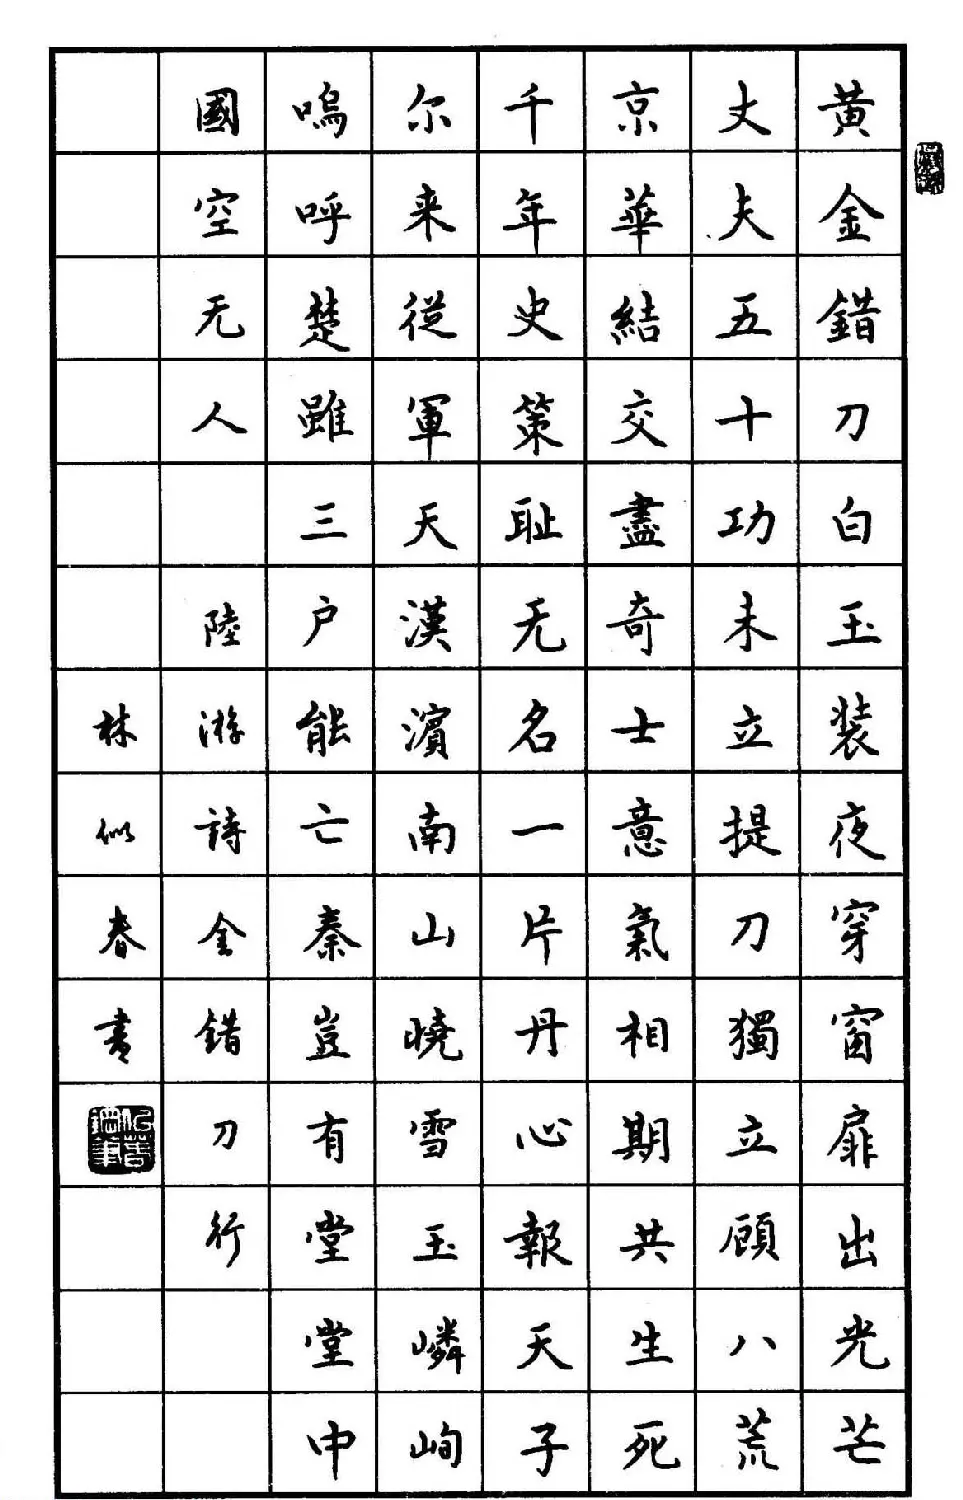 黄金錯刀白玉装夜穿窗扉出光芒
丈夫五十功未立提刀獨立顧八荒
京華結交盡奇士意氣相期共生死
千年史策耻无名一片丹心報天子
尔来從軍天漢濱南山曉雪玉嶙峋
嗚呼楚雖三户能亡秦豈有堂堂中
國空无人 陸游詩金错刀行
林似春書